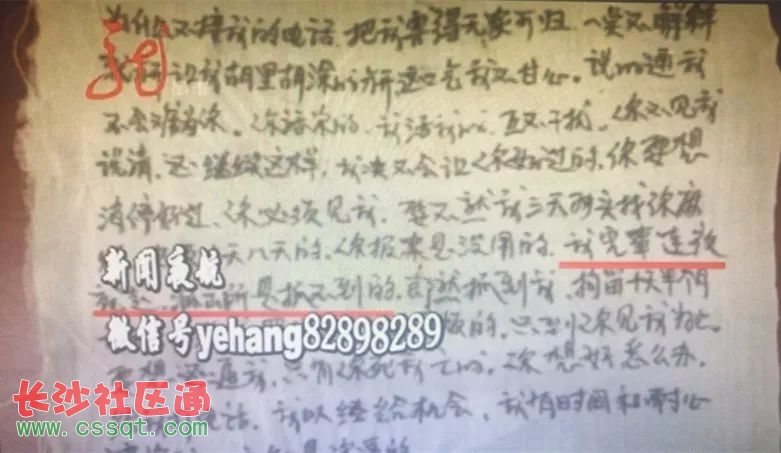 为什么不接我的电话,把我害得无家可归,一点不解释
我胡里胡涂的 这口气我不甘心。说的通我
不会难为你。你活你的,我活我的,互不干扰。你不见我
说清,还继续这样,我决不会让你好过的,你要想
清停好过,你必须见我,要不然我三天两头找你麻
天八天的,你报案是没用的,我完事连夜
新闻夜航
是抓不到的,即然抓到我,拘留十天半个
微信号yehang82898289
的,只到你见我为止。
要想 我,只有你死我亡的。你想好怎么办。
电话,我以经给机会,我有时间和耐心
长沙社区通
www.cssqt.com